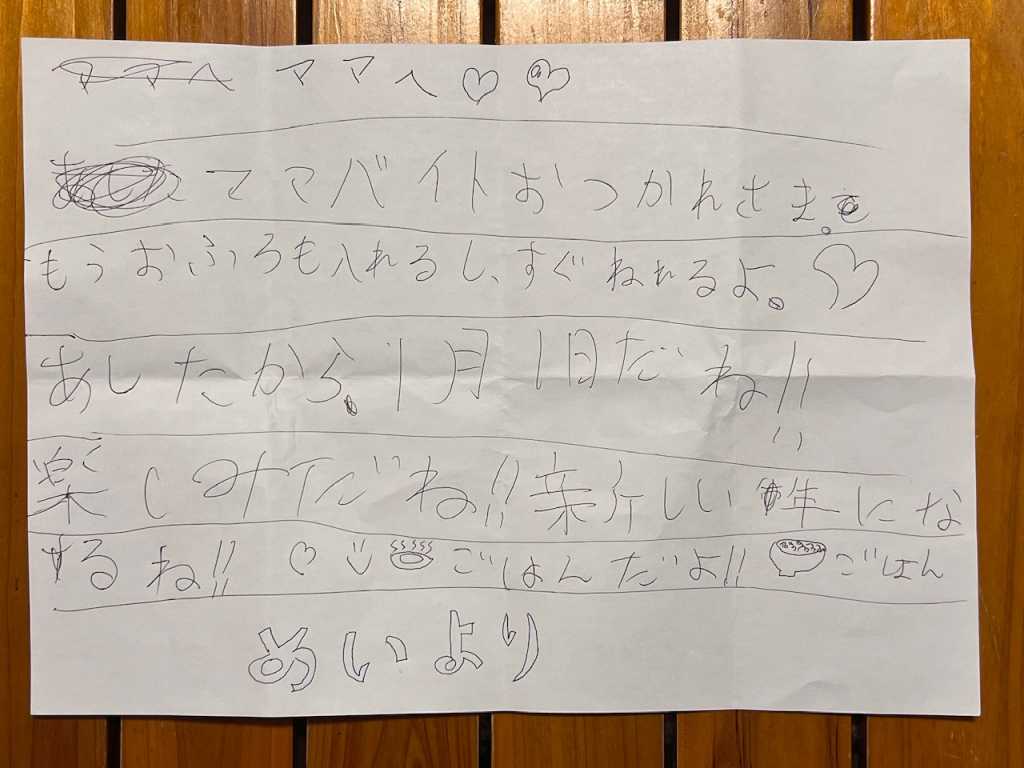 ママへ
ママバイトおつかれさま。
もうおふろも入れるし、すぐねれるよ。
あしたから、1月1日だね!!
楽しみだね!!新しい年にな
るね!! ごはんだよ!! ごはん
めいより